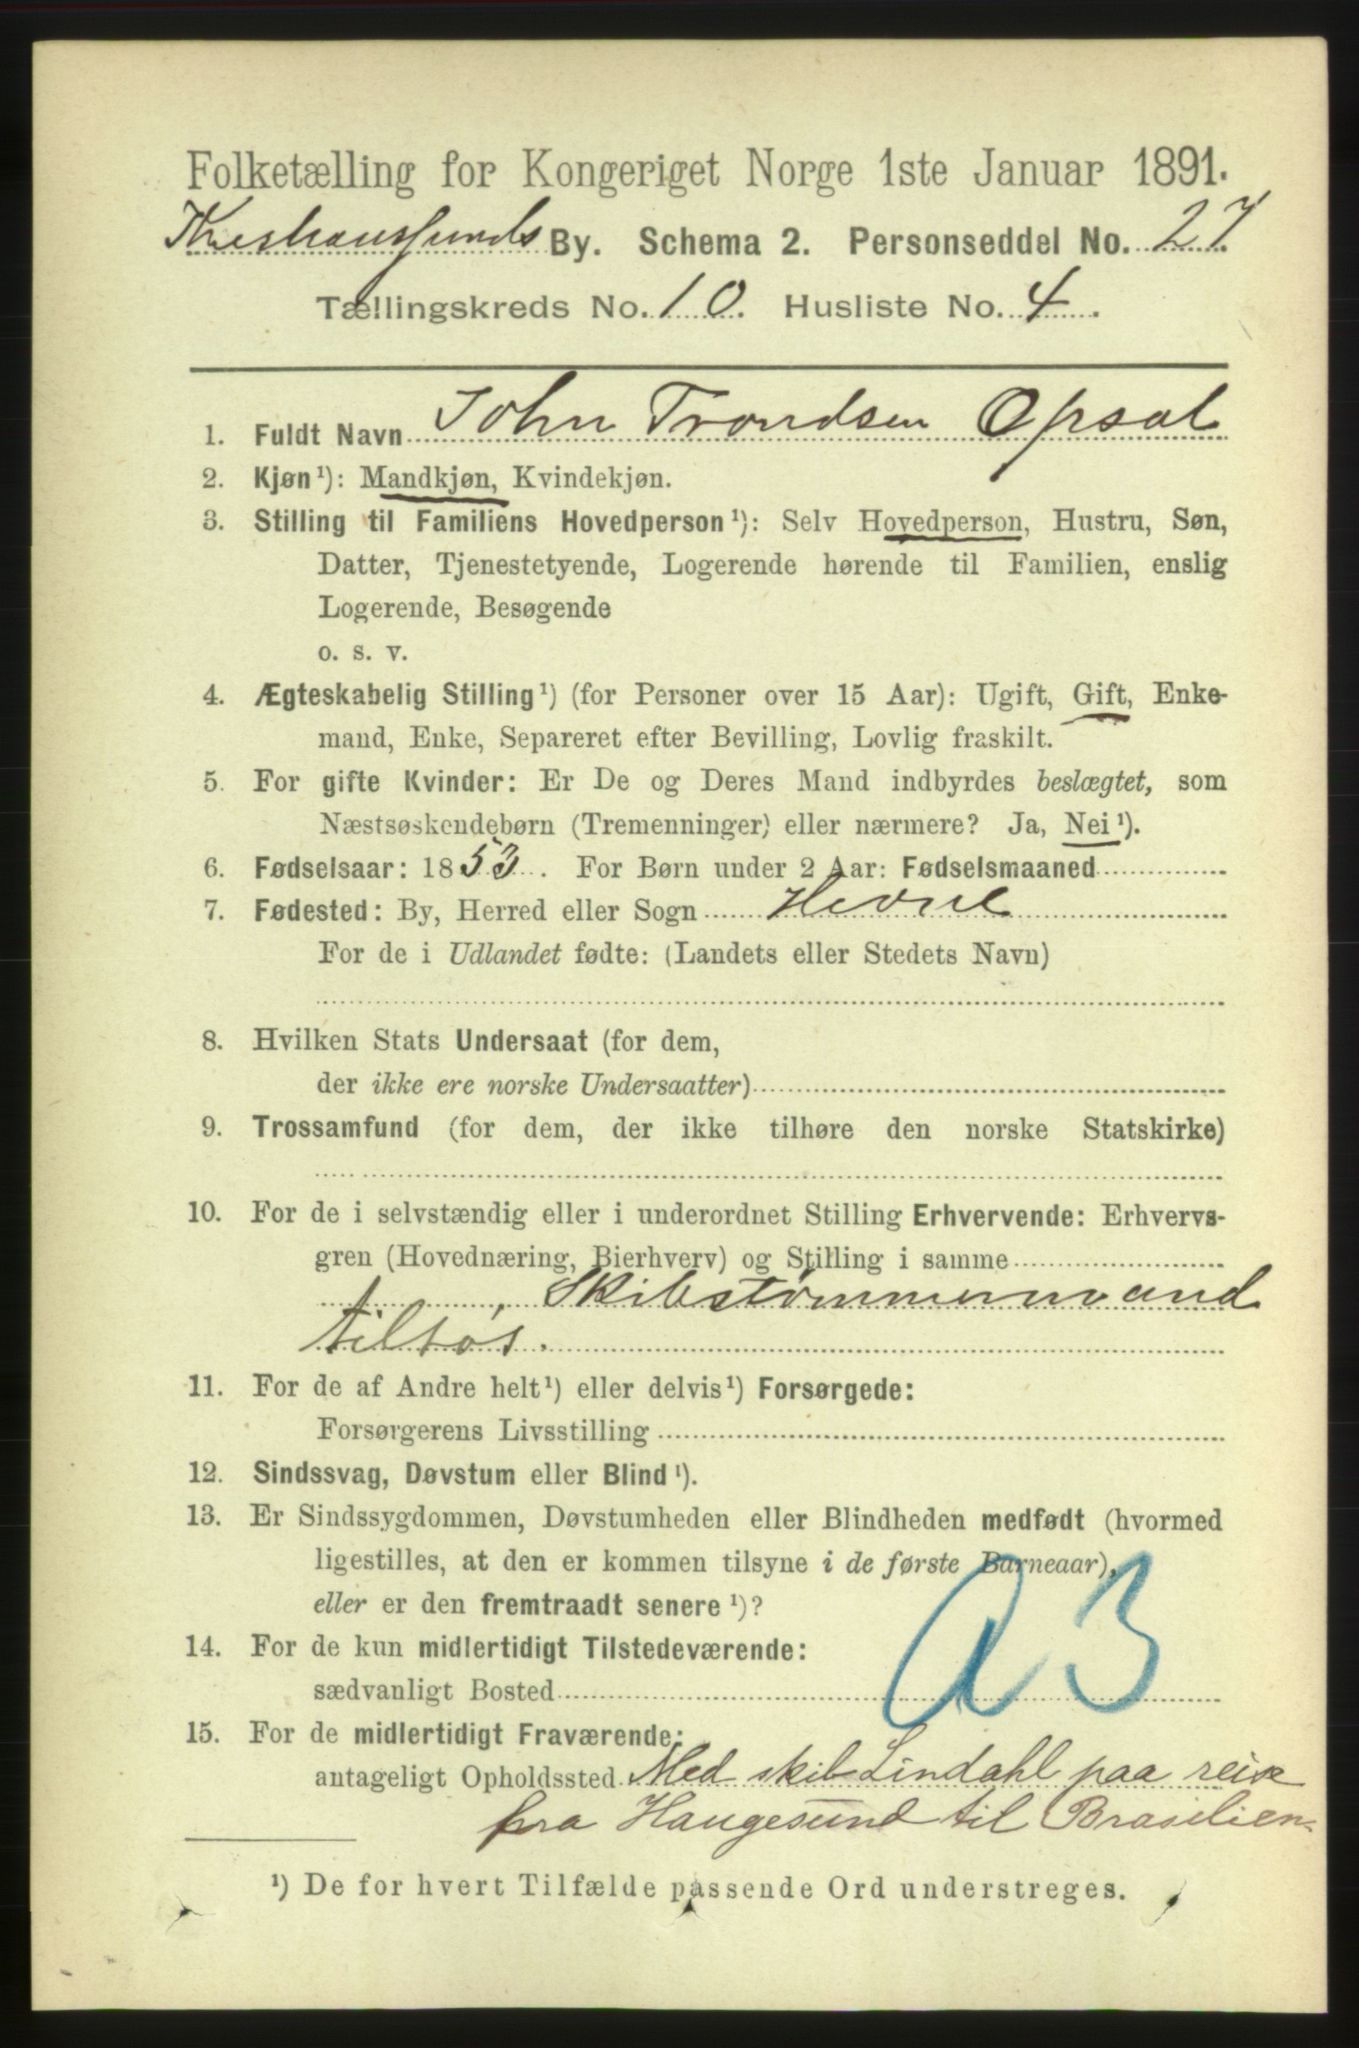 Folketælling for Kongeriget Norge 1ste Januar 1891.
Kristiansunds By. Schema 2. Personseddel No. 27
Tællingskreds No. 10. Husliste No. 4.
1. Fuldt Navn John Trondsen Opsal
2. Kjøn¹): Mandkjøn, Kvindekjøn.
3. Stilling til Familiens Hovedperson¹): Selv Hovedperson, Hustru, Søn,
Datter, Tjenestetyende, Logerende hørende til Familien, enslig
Logerende, Besøgende
o. s. v.
4. Ægteskabelig Stilling¹) (for Personer over 15 Aar): Ugift, Gift, Enke-
mand, Enke, Separeret efter Bevilling, Lovlig fraskilt.
5. For gifte Kvinder: Er De og Deres Mand indbyrdes beslægtet, som
Næstsøskendebørn (Tremenninger) eller nærmere? Ja, Nei¹).
6. Fødselsaar: 1853. For Børn under 2 Aar: Fødselsmaaned
7. Fødested: By, Herred eller Sogn Hevne
For de i Udlandet fødte: (Landets eller Stedets Navn)
8. Hvilken Stats Undersaat (for dem,
der ikke ere norske Undersaatter)
9. Trossamfund (for dem, der ikke tilhøre den norske Statskirke)
10. For de i selvstændig eller i underordnet Stilling Erhvervende: Erhvervs-
gren (Hovednæring, Bierhverv) og Stilling i samme
Skibstømmermand
tilsøs.
11. For de af Andre helt¹) eller delvis¹) Forsørgede:
Forsørgerens Livsstilling
12. Sindssvag, Døvstum eller Blind¹).
13. Er Sindssygdommen, Døvstumheden eller Blindheden medfødt (hvormed
ligestilles, at den er kommen tilsyne i de første Barneaar),
eller er den fremtraadt senere¹)?
14. For de kun midlertidigt Tilstedeværende:
sædvanligt Bosted
a 3
15. For de midlertidigt Fraværende:
antageligt Opholdssted Med skib Lindahl paa reise
fra Haugesund til Brasilien.
¹) De for hvert Tilfælde passende Ord understreges.